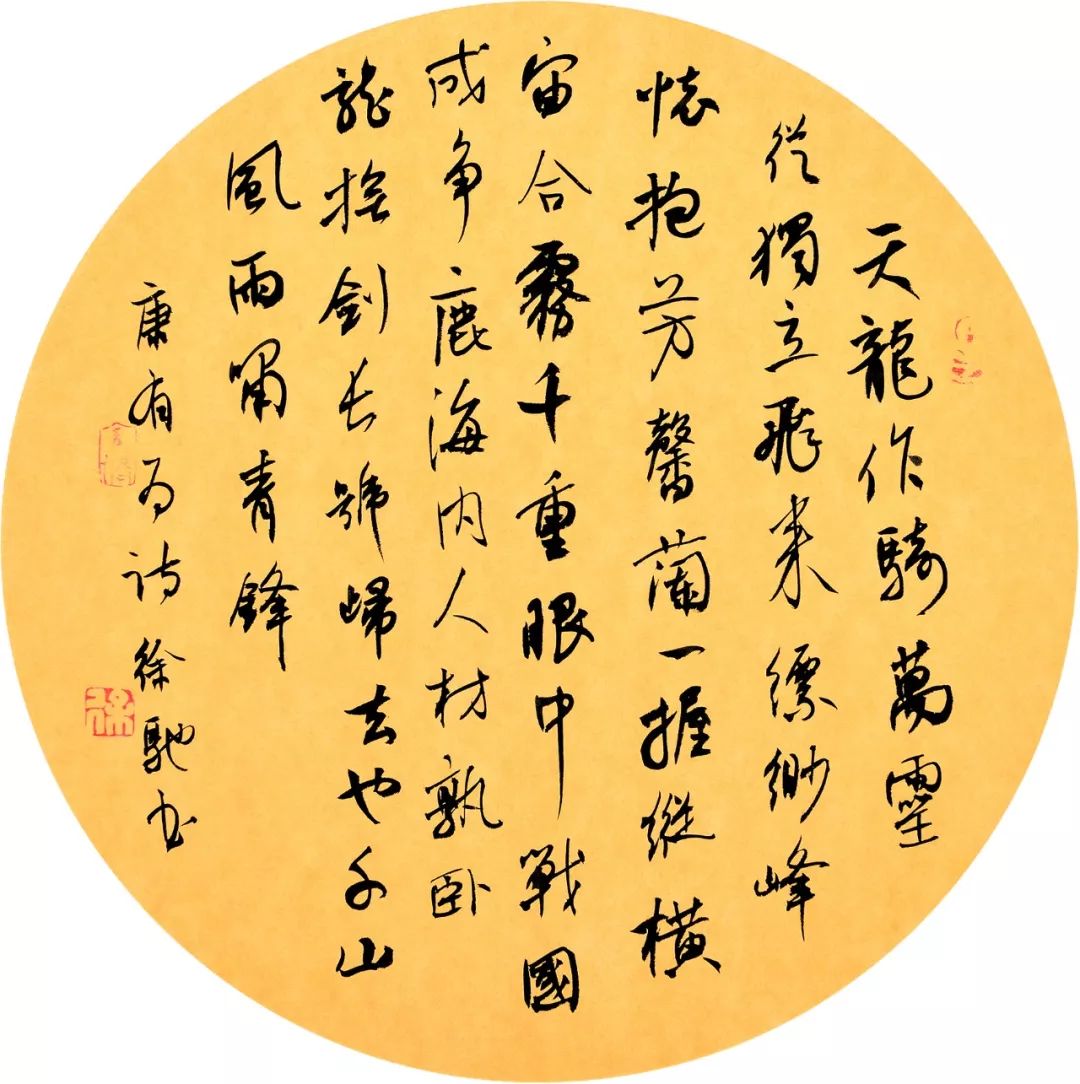 天龍作騎萬靈
從獨立飛來縹緲峰
懷抱芳馨蘭一握縱橫
宙合霧千重眼中戰國
成争鹿海内人材孰卧
龍撫劍長號歸去也千山
風雨嘯青鋒
康有為詩徐馳書